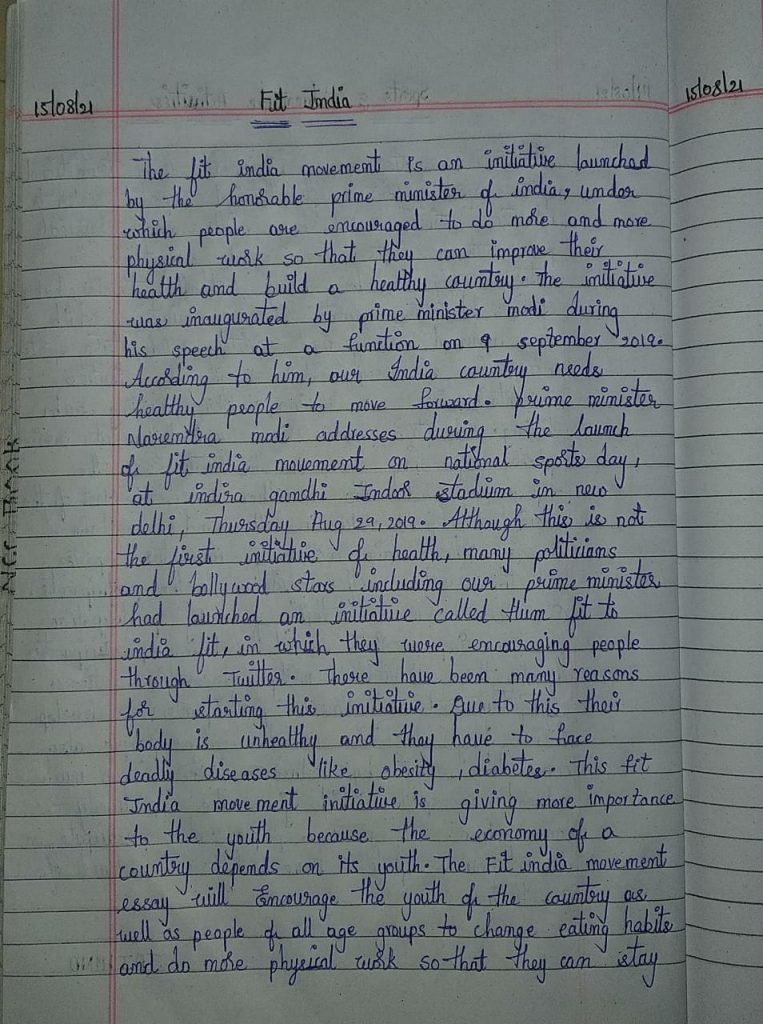 15/08/21
Fit India
15/08/21
The fit india movement is an initiative launched
by the honorable prime minister of india, under
which people are encouraged to do more and more
physical work so that they can improve their
health and build a healthy country. The initiative
was inaugurated by prime minister modi during
his speech at a function on 9 september 2019.
According to him, our India country needs
healthy people to move forward. Prime minister
Narendra modi addresses during the launch
of fit india movement on national sports day,
at indira gandhi Indoor stadium in new
delhi, Thursday Aug 29, 2019. Although this is not
the first initiative of health, many politicians
and bollywood stars including our prime minister
had launched an initiative called Hum fit to
india fit, in which they were encouraging people
through Twitter. There have been many reasons
for starting this initiative. Due to this their
body is unhealthy and they have to face
deadly diseases like obesity, diabetes. This fit
India movement initiative is giving more importance
to the youth because the economy of a
country depends on its youth. The Fit india movement
essay will Encourage the youth of the country as
well as people of all age groups to change eating habits
and do more physical work so that they can stay